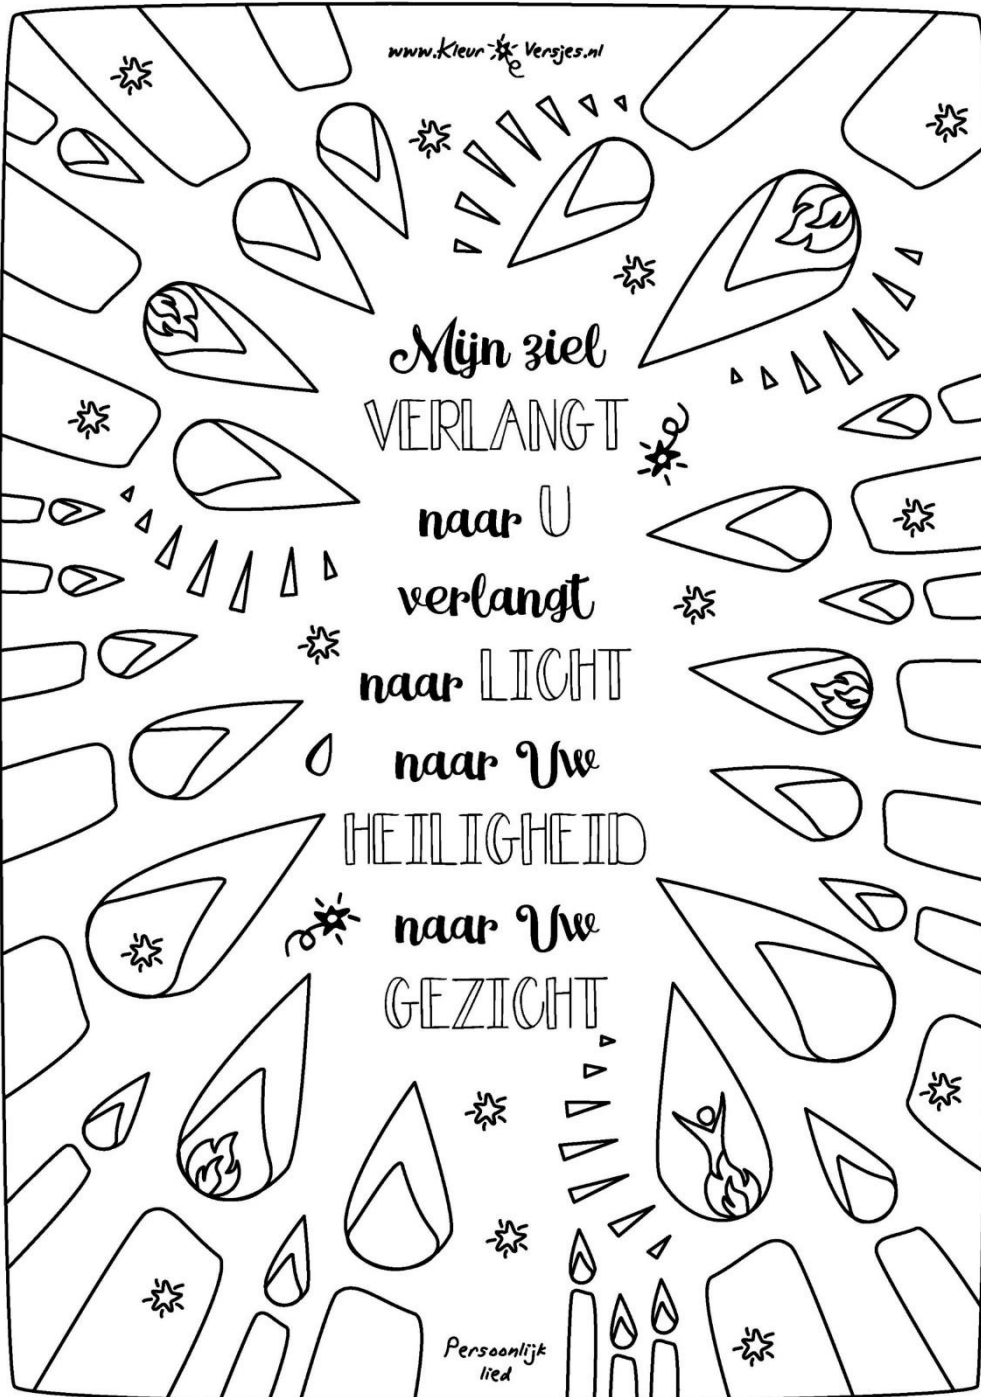 www.KleurVersjes.nl
Mijn ziel
VERLANGT
naar U
verlangt
naar LICHT
naar Uw
HEILIGHEID
naar Uw
GEZICHT
Persoonlijk
lied